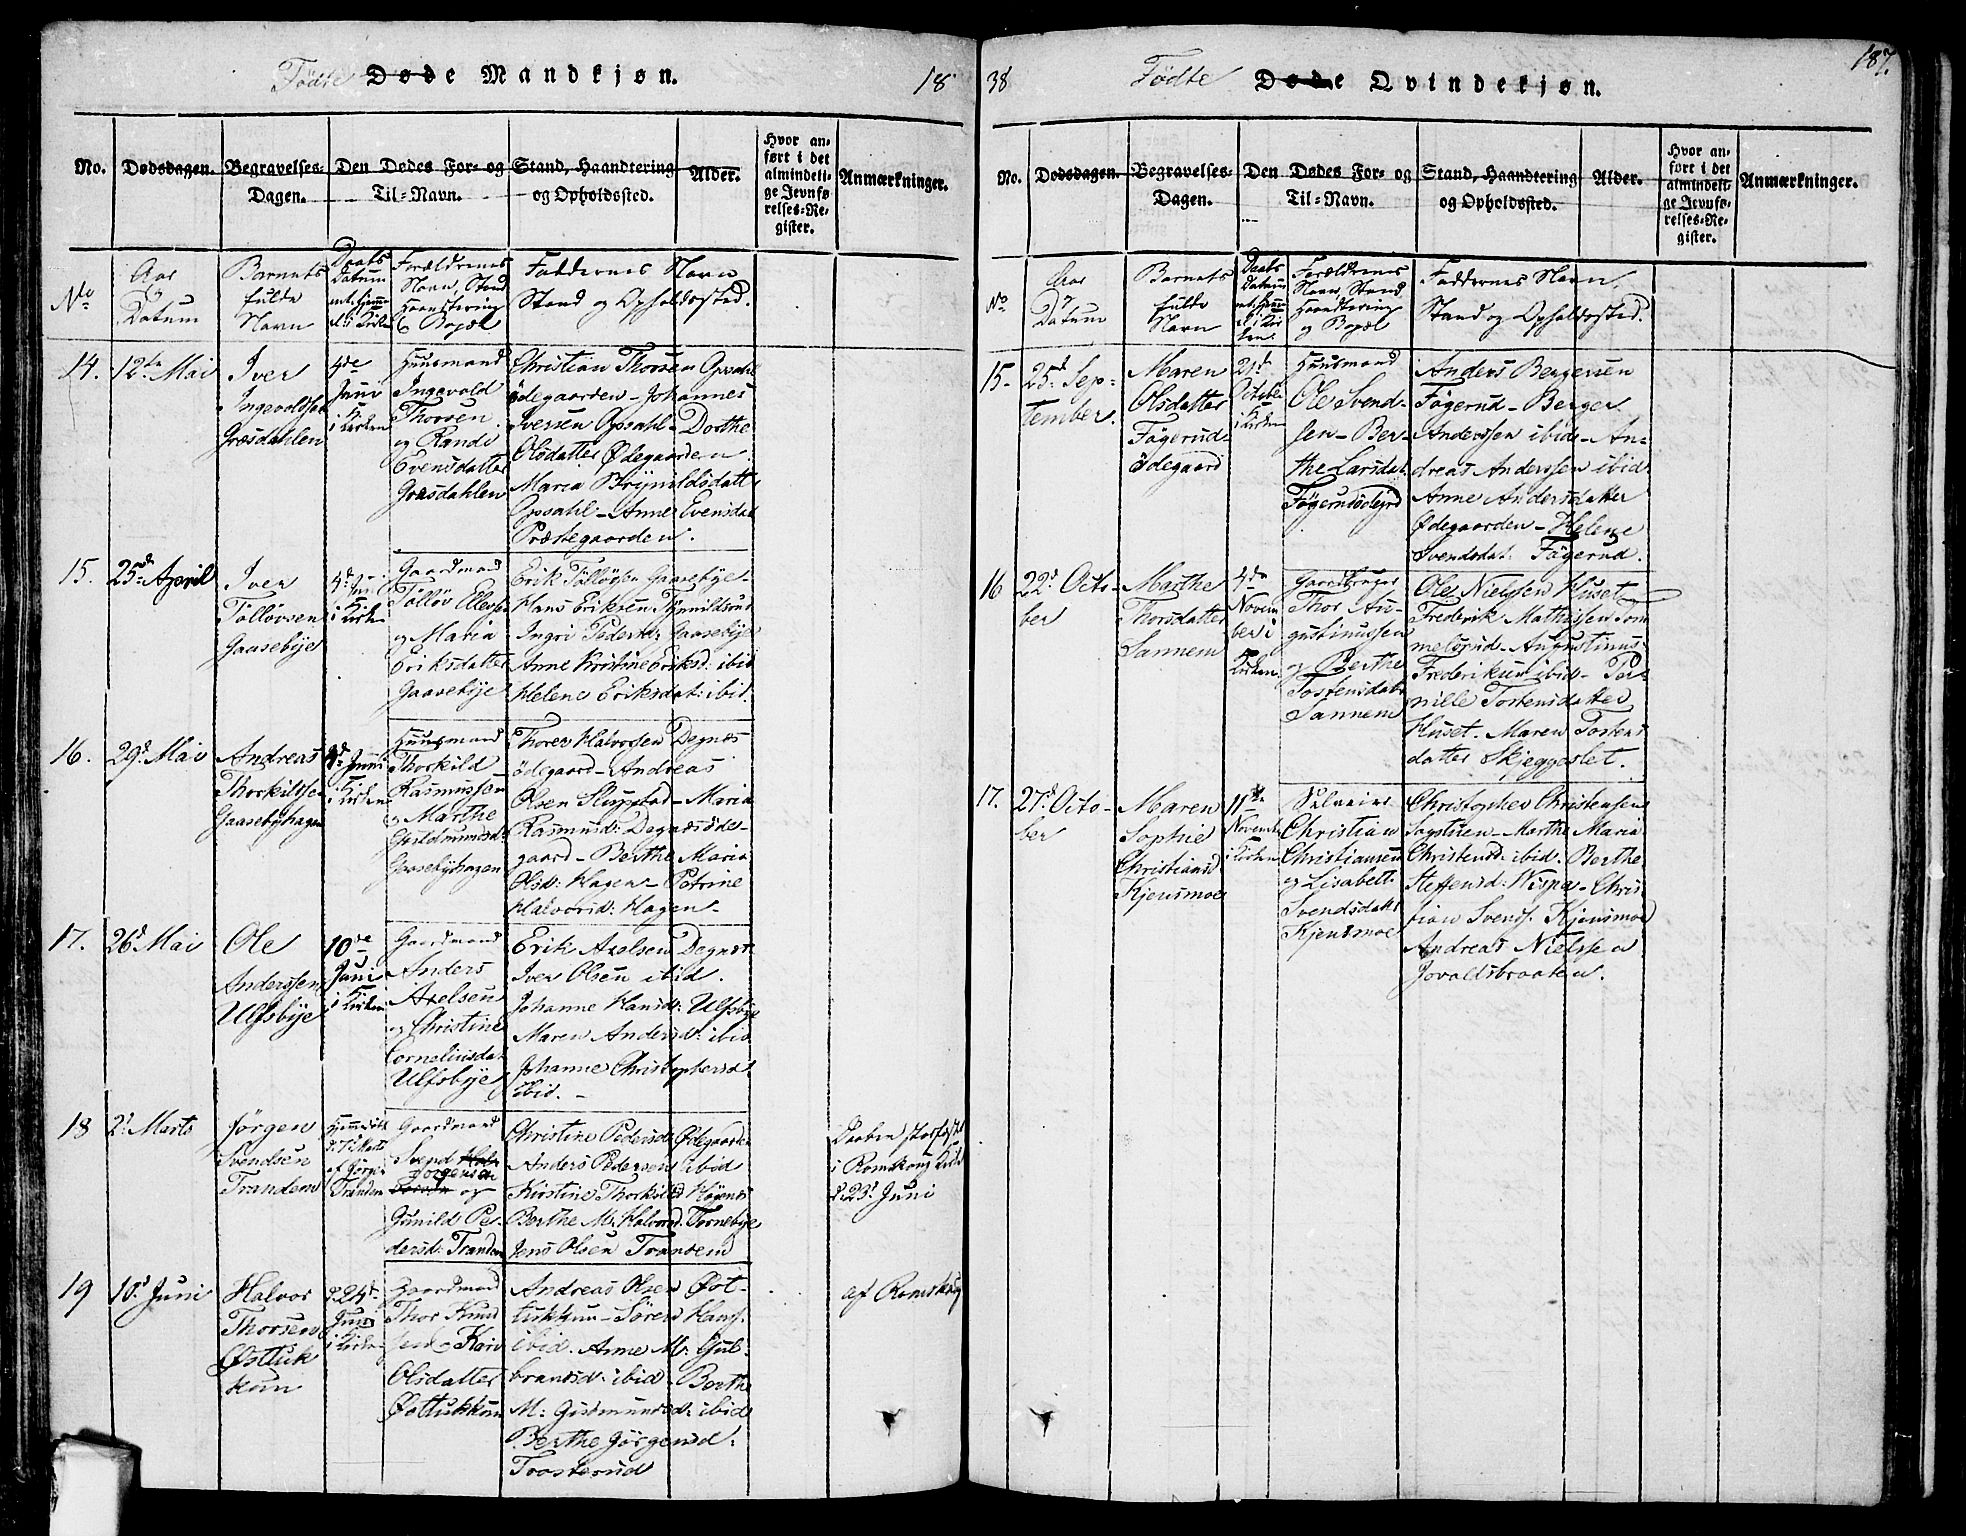 Fødte Døde Mandkjøn.
18
No.
Dødsdagen.
Begravelses-
Dagen.
Den Dødes For- og
Til-Navn.
Stand, Haandtering
og Opholdssted.
Alder.
Hvor an-
ført i det
almindeli-
ge Jevnfø-
relses-Re-
gister.
Anmærkninger.
No
Aar
og
Datum
Barnets
fulde
Navn
Daabs
Datum
Forældrenes
Navn, Stand
Haandtering
& Bopæl
Faddernes Navn
Stand og Opholdssted.
14.
12te Mai
Iver
Ingevoldsen
Græsdahlen
4de
Juni
i Kirken
Huusmand
Ingevold
Thorsen
og Randi
Evensdatter
Græsdahlen
Christian Thorsen Opsahl
ødegaarden - Johannes
Iversen Opsahl - Dorthe
Olsdatter Ødegaarden
Maria Brynildsdatt
Opsahl - Anne Evensdat
Præstegaarden.
15.
25de April
Iver
Tolløvsen
Gaasebye
4de
i Kirken
Gaardmand
Tolløv Ellefsen
og Maria
Eriksdatter
Gaasebye
Erik Tolløvsen Gaasebye -
Hans Eriksen
Ingri Pedersd: Gaasebye
Anne Kristine Eriksd: ibid
Helene Eriksdat: ibid.
16.
29d Mai
Andreas
Thorkildsen
Gaasebyhagen
4d Juni
i Kirken
Huusmand
Thorkild
Rasmussen
og Marthe
Guldmundsd:
Gaasebyhagen
Thorer Halvorsen Degnæs
ødegaard - Andreas
Olsen Slupstad - Maria
Rasmusd: Degnæsøde-
gaard - Berthe Maria
Olsd: Hagen - Petrine
Halvorsd: Hagen -
17.
26d Mai
Ole
Anderssen
Ulfsbye
10de
Juni
i Kirken
Gaardmand
Anders
Axelsen
og Christine
Corneliusdat
Ulfsbye
Erik Axelsen Degnæs
Iver Olsen ibid.
Johanne Hansd: Ulfsbye
Maren Andersd: ibid
Johanne Christophersd
ibid. -
18
2d Marts
Jørgen
Svendsen
Trandem
Hjemmedøbt
d. 7d Marts
af Jørgen
Trandem
Gaardmand
Svend
Jørgensen
og
Gunild Pe-
dersd: Trandem
Christine Pedersd Ødegaarden
Anders Pedersen ibid
Kirstine Thorkilsd Høgenes
Berthe M: Halvorsd. Tornebye
Jens Olsen Trandem
Daaben stadfæstet
i Romskoug Kirke
d: 23d Juni
19
10d Juni
Halvor
Thorsen
Østtuk
kun
d. 24d
Juni
i Kirken
Gaardmand
Thor Knud
sen & Kari
Olsdatter
Østtukkun
Andreas Olsen Øst-
tukkun - Søren Hans.
ibid. Anne M: Gul-
brandsd: ibid - Berthe
M: Gudmundsd: ibid
Berthe Jørgensd:
Trosterud
af Romskog
38
Fødte Døde Qvindekjøn.
187.
No.
Dødsdagen.
Begravelses-
Dagen.
Den Dødes For- og
Til-Navn.
Stand, Haandtering
og Opholdssted.
Alder.
Hvor an-
ført i det
almindeli-
ge Jevnfø-
relses-Re-
gister.
Anmærkninger.
No
Aar
og
Datum
Barnets
fulde
Navn
Daabs
Datum
Forældrenes
Navn, Stand
Haandtering
og Bopæl
Faddernes Navn,
Stand og Opholdssted.
15-
25d Sep-
tember.
Maren
Olsdatter
Fôgerud-
ødegaard
21d
Octobe
i Kirken
Huusmand
Ole Svend-
sen - Ber-
the Larsdat.
Fôgerudødegrd
Anders Bergersen
Fôgerud - Berger
Anderssen ibid - An-
dreas Anderssen ibid
Anne Andersdatter
Ødegaarden - Helene
Svendsdat. Fôgerud.
16
22d Octo-
ber
Marthe
Thorsdatter
Sannem
4de
Novem
ber i
Kirken
Gaardbruger
Thor Au-
gustinussen
og Berthe
Tostensdatr
Sannem
Ole Nielssen Huset -
Frederik Mathissen Tom
melsrud - Augustinus
Frederiksen ibid - Per-
nille Tostensdatter
Huset. Maren Tostens
datter Skjeggestet.
17.
27d Octo-
ber
Maren
Sophie
Christiansd
Kjensmoe
11te
Novemb
i Kirken
Christian
Christiansen
og Lisabett
Svendsdatr
Kjensmoe
Christopher Christensen
Sagstuen - Marthe Maria
Christensd: ibid. Berthe
Steffensd: Wispa - Chris
tian Svends. Kjensmoe
Andreas Nielsen
Jovaldsbraaten.